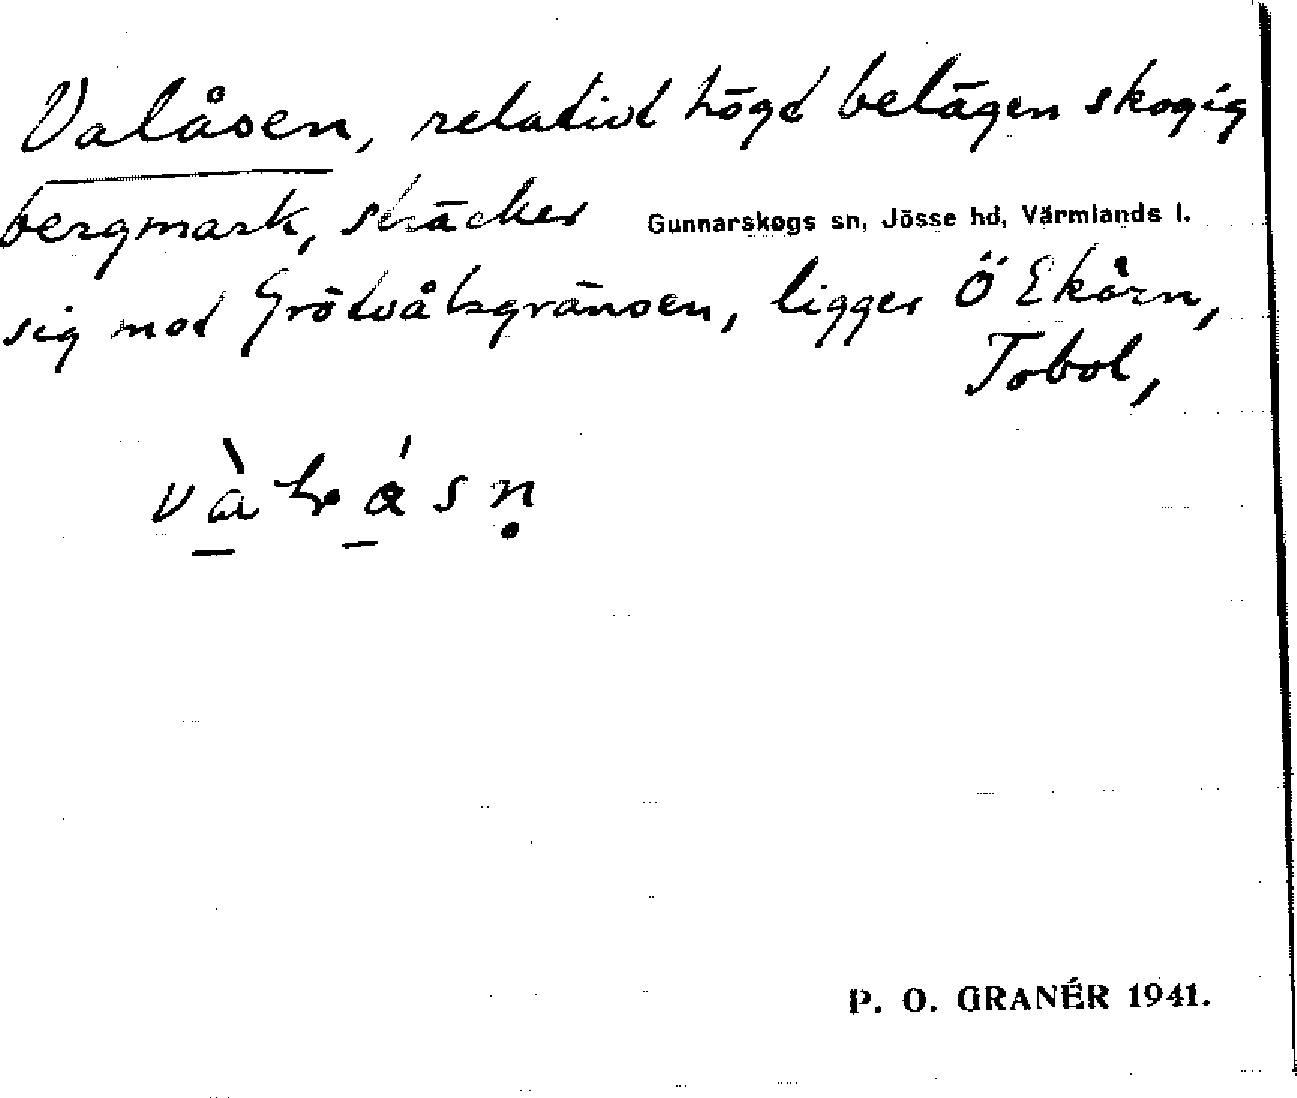 Valåsen, relativt högt belägen skogig
bergmark, sträcker
Gunnarskogs sn, Jösse hd, Värmlands l.
sig mot Grötvålsgränsen, ligger Ö Ekårn,
Tobol,
P. O. GRANÉR 1941.